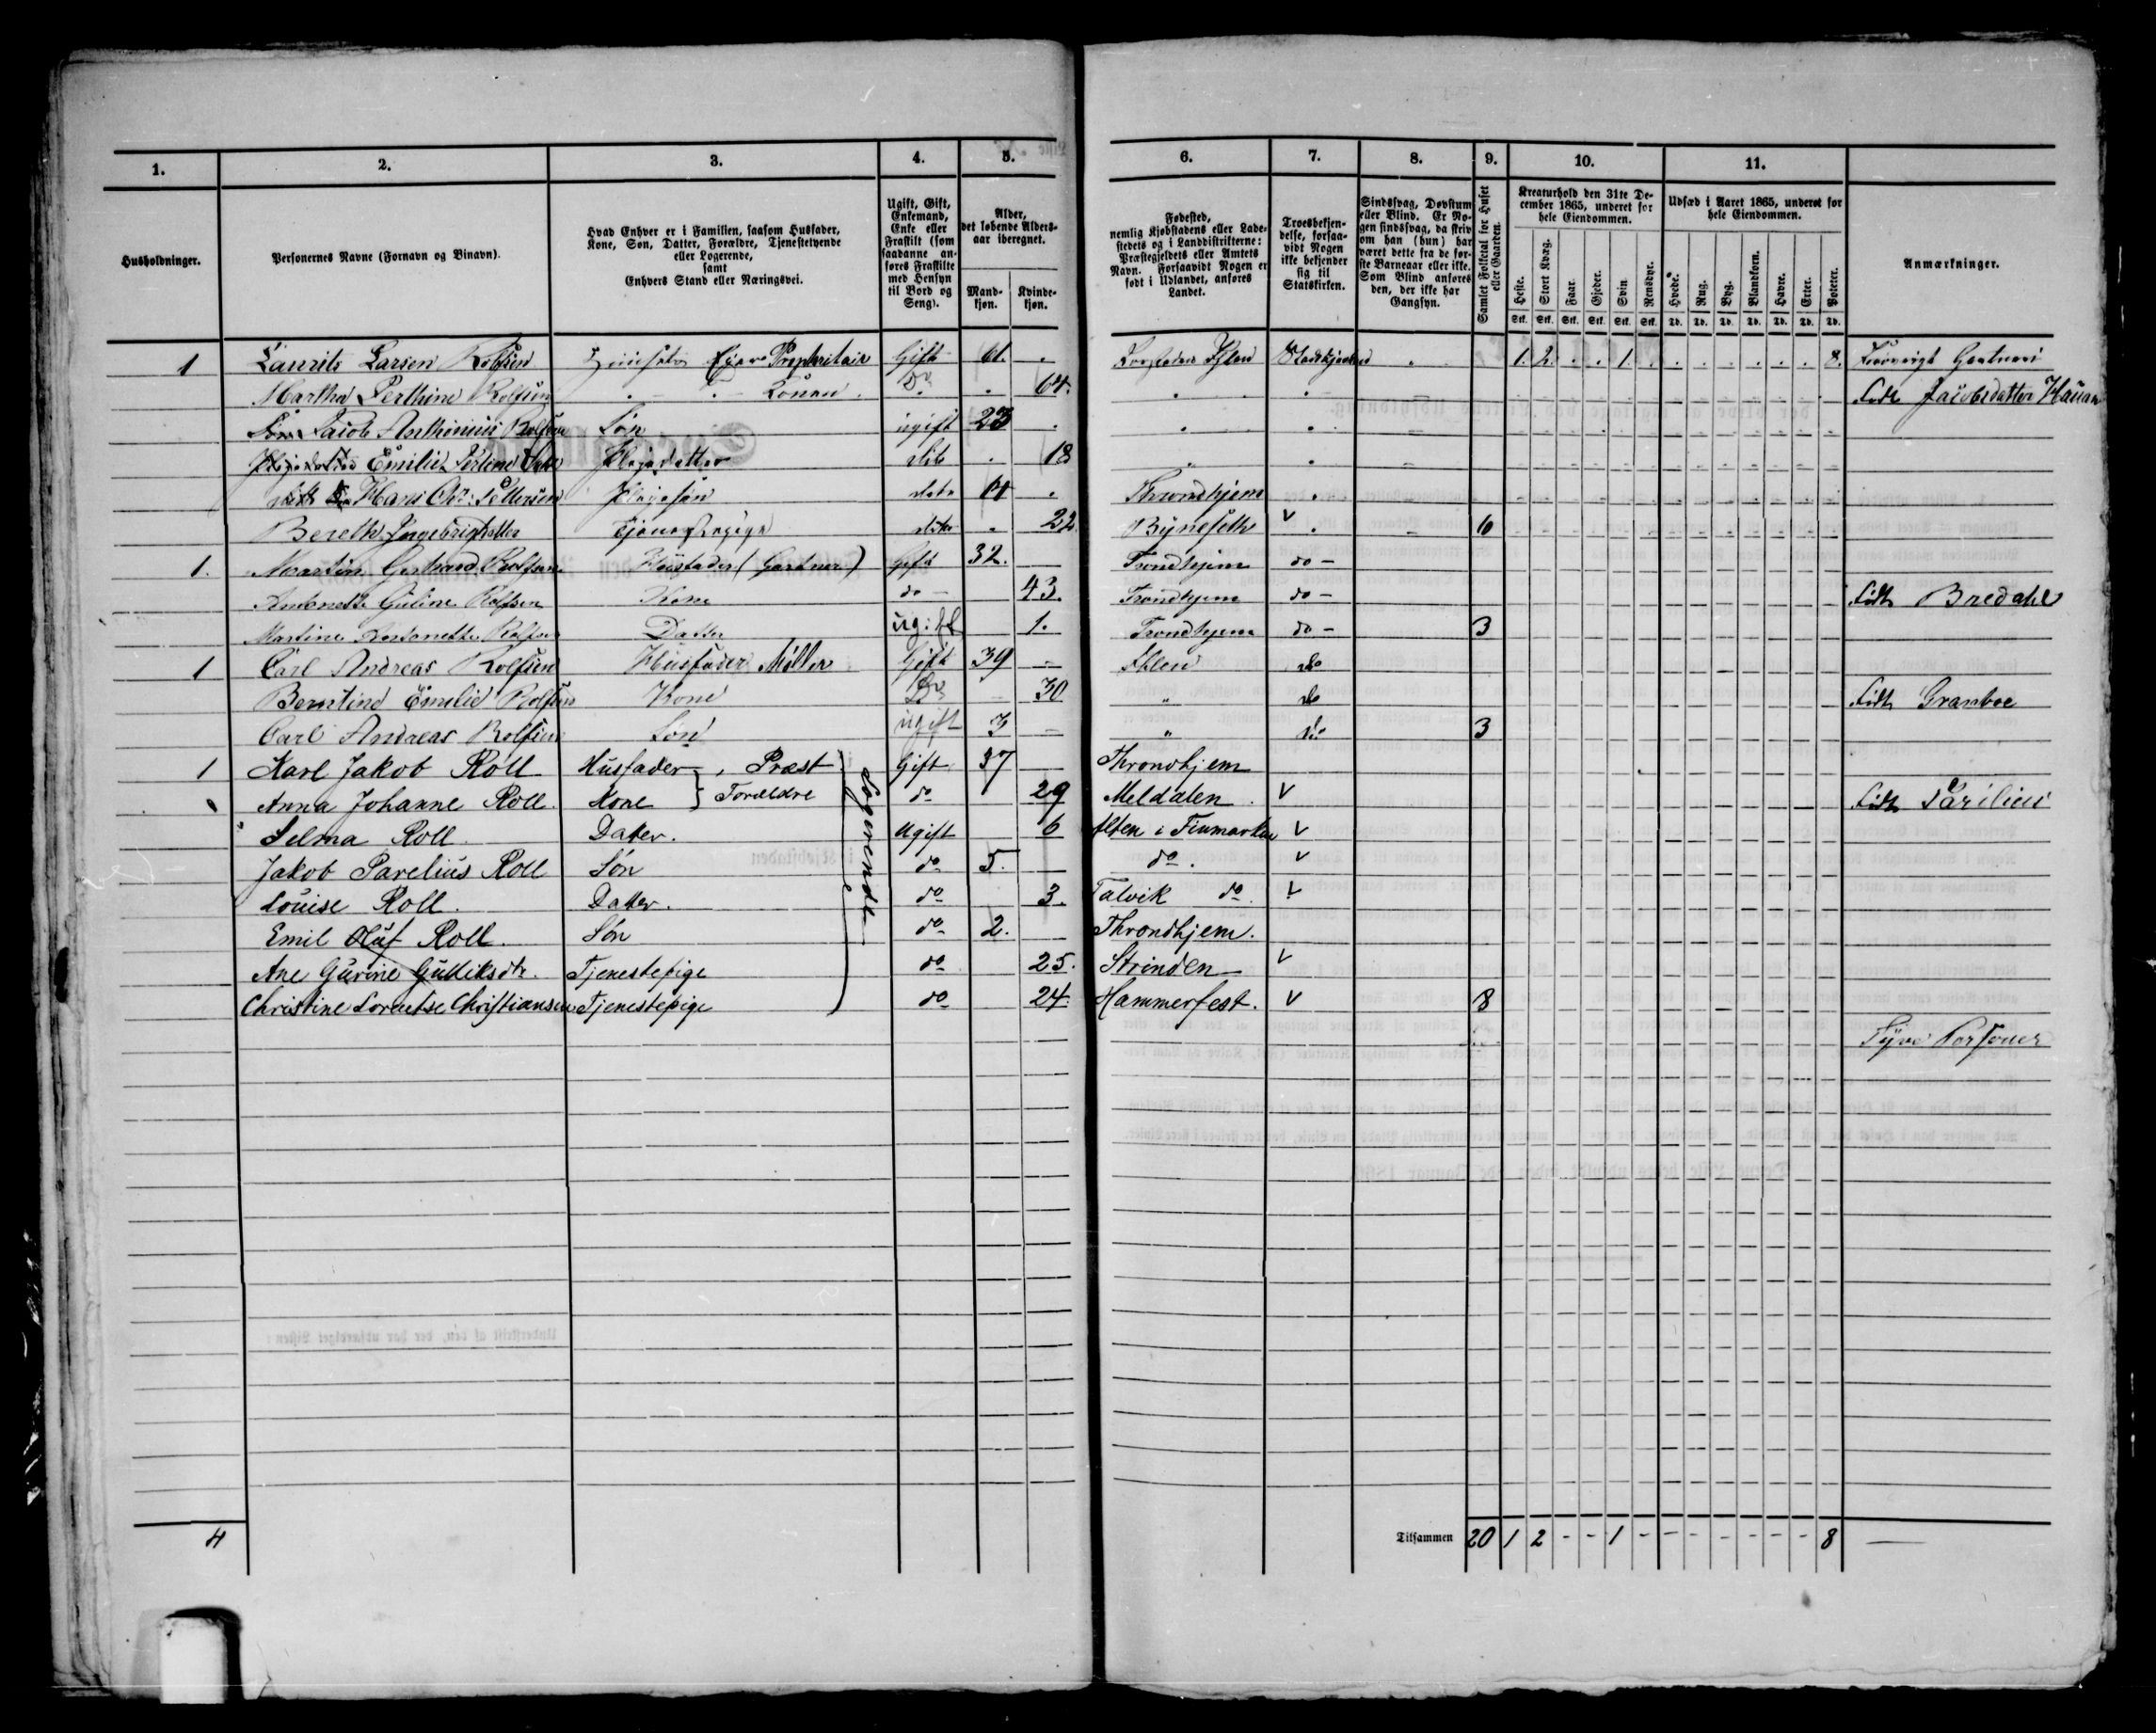 1. 2. 3. 4. 5. 6. 7. 8. 9. 10. 11.
Husholdninger.
Personernes Navne (Fornavn og Binavn).
Hvad Enhver er i Familien, saasom Husfader, Kone, Søn, Datter, Forældre, Tjenestetyende eller Logerende, samt Enhvers Stand eller Næringsvei.
Ugift, Gift, Enkemand, Enke eller Fraskilt (som saadanne anføres Fraskilte med Hensyn til Bord og Seng).
Alder, det løbende Aldersaar iberegnet.
Mandkjøn. Kvindekjøn.
Fødested, nemlig Kjøbstadens eller Ladestedets og i Landdistrikterne: Præstegjeldets eller Amtets Navn. Forsaavidt Nogen er født i Udlandet, anføres Landet.
Troesbekjendelse, forsaavidt Nogen ikke bekjender sig til Statskirken.
Sindssvag, Døvstum eller Blind. Er Nogen sindssvag, da skriv om han (hun) har været dette fra de første Barneaar eller ikke. Som Blind anføres den, der ikke har Gangsyn.
Samlet Folketal for Huset eller Gaarden.
Kreaturhold den 31te December 1865, underet for hele Eiendommen.
Heste. Stort Kvæg. Faar. Gjeder. Svin. Rensdyr.
Stk. Stk. Stk. Stk. Stk. Stk.
Udsæd i Aaret 1865, underet for hele Eiendommen.
Hvede. Rug. Byg. Blandkorn. Havre. Erter. Poteter.
Td. Td. Td. Td. Td. Td. Td.
Anmærkninger.
1 Laurits Larsen Rolfsen Gift 61. 1. 2. . . 1. 8.
Martha Perthine Rolfsen Konen Do 64. Født Jacobsdatter
Jacob Anthonius Rolfsen Søn ugift 23
Emilie Pleiedatter 18
Hans Chr: Pettersen Pleiesøn Throndhjem
Bereth Ingebrigtsdatter Tjenestepige 22 Bynesseth v 6
1. Martin Gerhard Rolfsen Husfader (Gartner) Gift 32. Trondhjem do
Antonette Guline Rolfsen Kone do 43. Trondhjem do Født Bredahl
Martine Antonette Rolfsen Datter ugift 1. Trondhjem do 3
1 Carl Andreas Rolfsen Husfader Møller Gift 39 Ihlen do
Berntine Emilie Rolfsen Kone Do 30 " do Født Gramboe
Carl Andreas Rolfsen Søn ugift 3 " do 3
1 Karl Jakob Roll Husfader, Præst Gift 37 Throndhjem
Anna Johanne Roll. Kone } Forældre do 29 Meldalen. v Født Parelius
Selma Roll. Datter. Ugift 6 Alten i Finmarken v
Jakob Parelius Roll Søn do 5. do. v
Louise Roll. Datter. do 3. Talvik do. v
Emil Oluf Roll. Søn do 2. Throndhjem.
Ane Gurine Gulliksdtr. Tjenestepige do 25. Strinden v
Christine Lorentse Christiansen Tjenestepige do 24. Hammerfest. v 8
Logerende
Tyve Personer
4 Tilsammen 20 1 2 - - 1 - - - - - - - 8